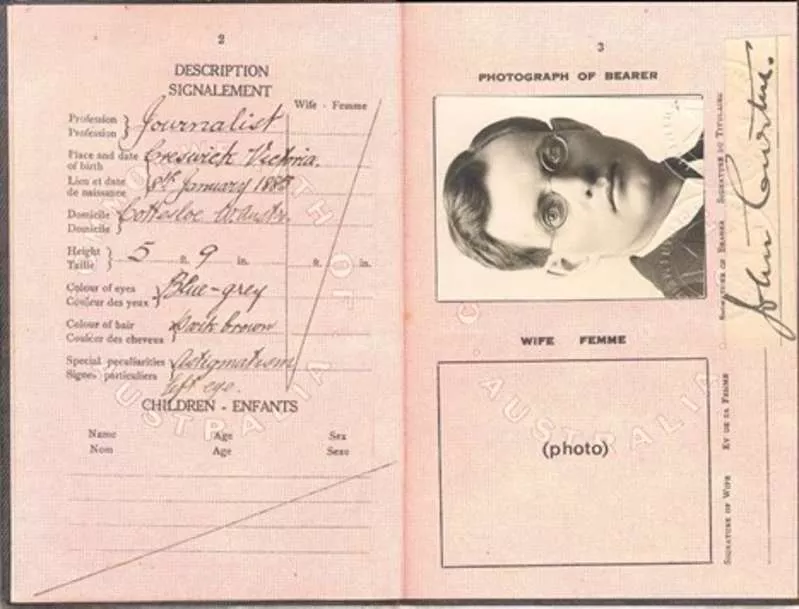 2
DESCRIPTION
SIGNALEMENT
Wife - Femme
Profession
Profession } Journalist
Place and date
of birth
Lieu et date
de naissance } Creswick Victoria.
8th January 1885
Domicile
Domicile } Cottesloe W. Austr.
Height
Taille } 5 ft. 9 in. ft. in.
Colour of eyes
Couleur des yeux } Blue-grey
Colour of hair
Couleur des cheveux } Dark brown
Special peculiarities
Signes particuliers } Astigmatism
left eye.
CHILDREN - ENFANTS
Name Age Sex
Nom Age Sexe
3
PHOTOGRAPH OF BEARER
SIGNATURE OF BEARER SIGNATURE DU TITULAIRE
John Curtin.
WIFE FEMME
(photo)
SIGNATURE OF WIFE ET DE SA FEMME
AUSTRALIA
AUSTRALIA